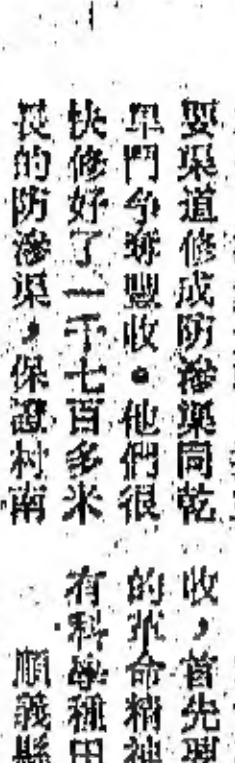 要渠道修成防滲渠同乾
旱鬥爭奪豐收。他們很
快修好了一千七百多米
長的防滲渠，保證村南
收，首先要
的革命精神
有科學種田
順義縣